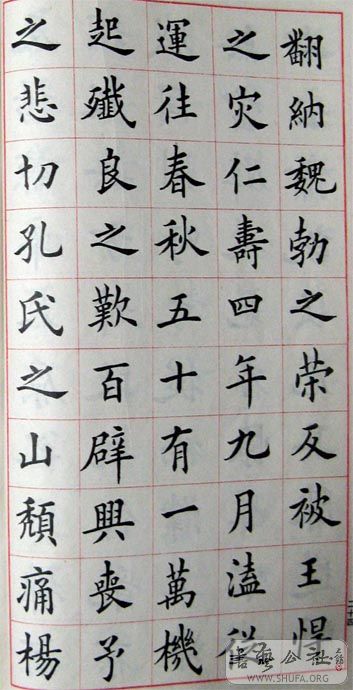 翻納魏勃之荣反被王悍
之灾仁壽四年九月溘從
運往春秋五十有一萬機
起殲良之歎百辟興喪予
之悲切孔氏之山頹痛楊
二十四
書藝公社
WWW.SHUFA.ORG